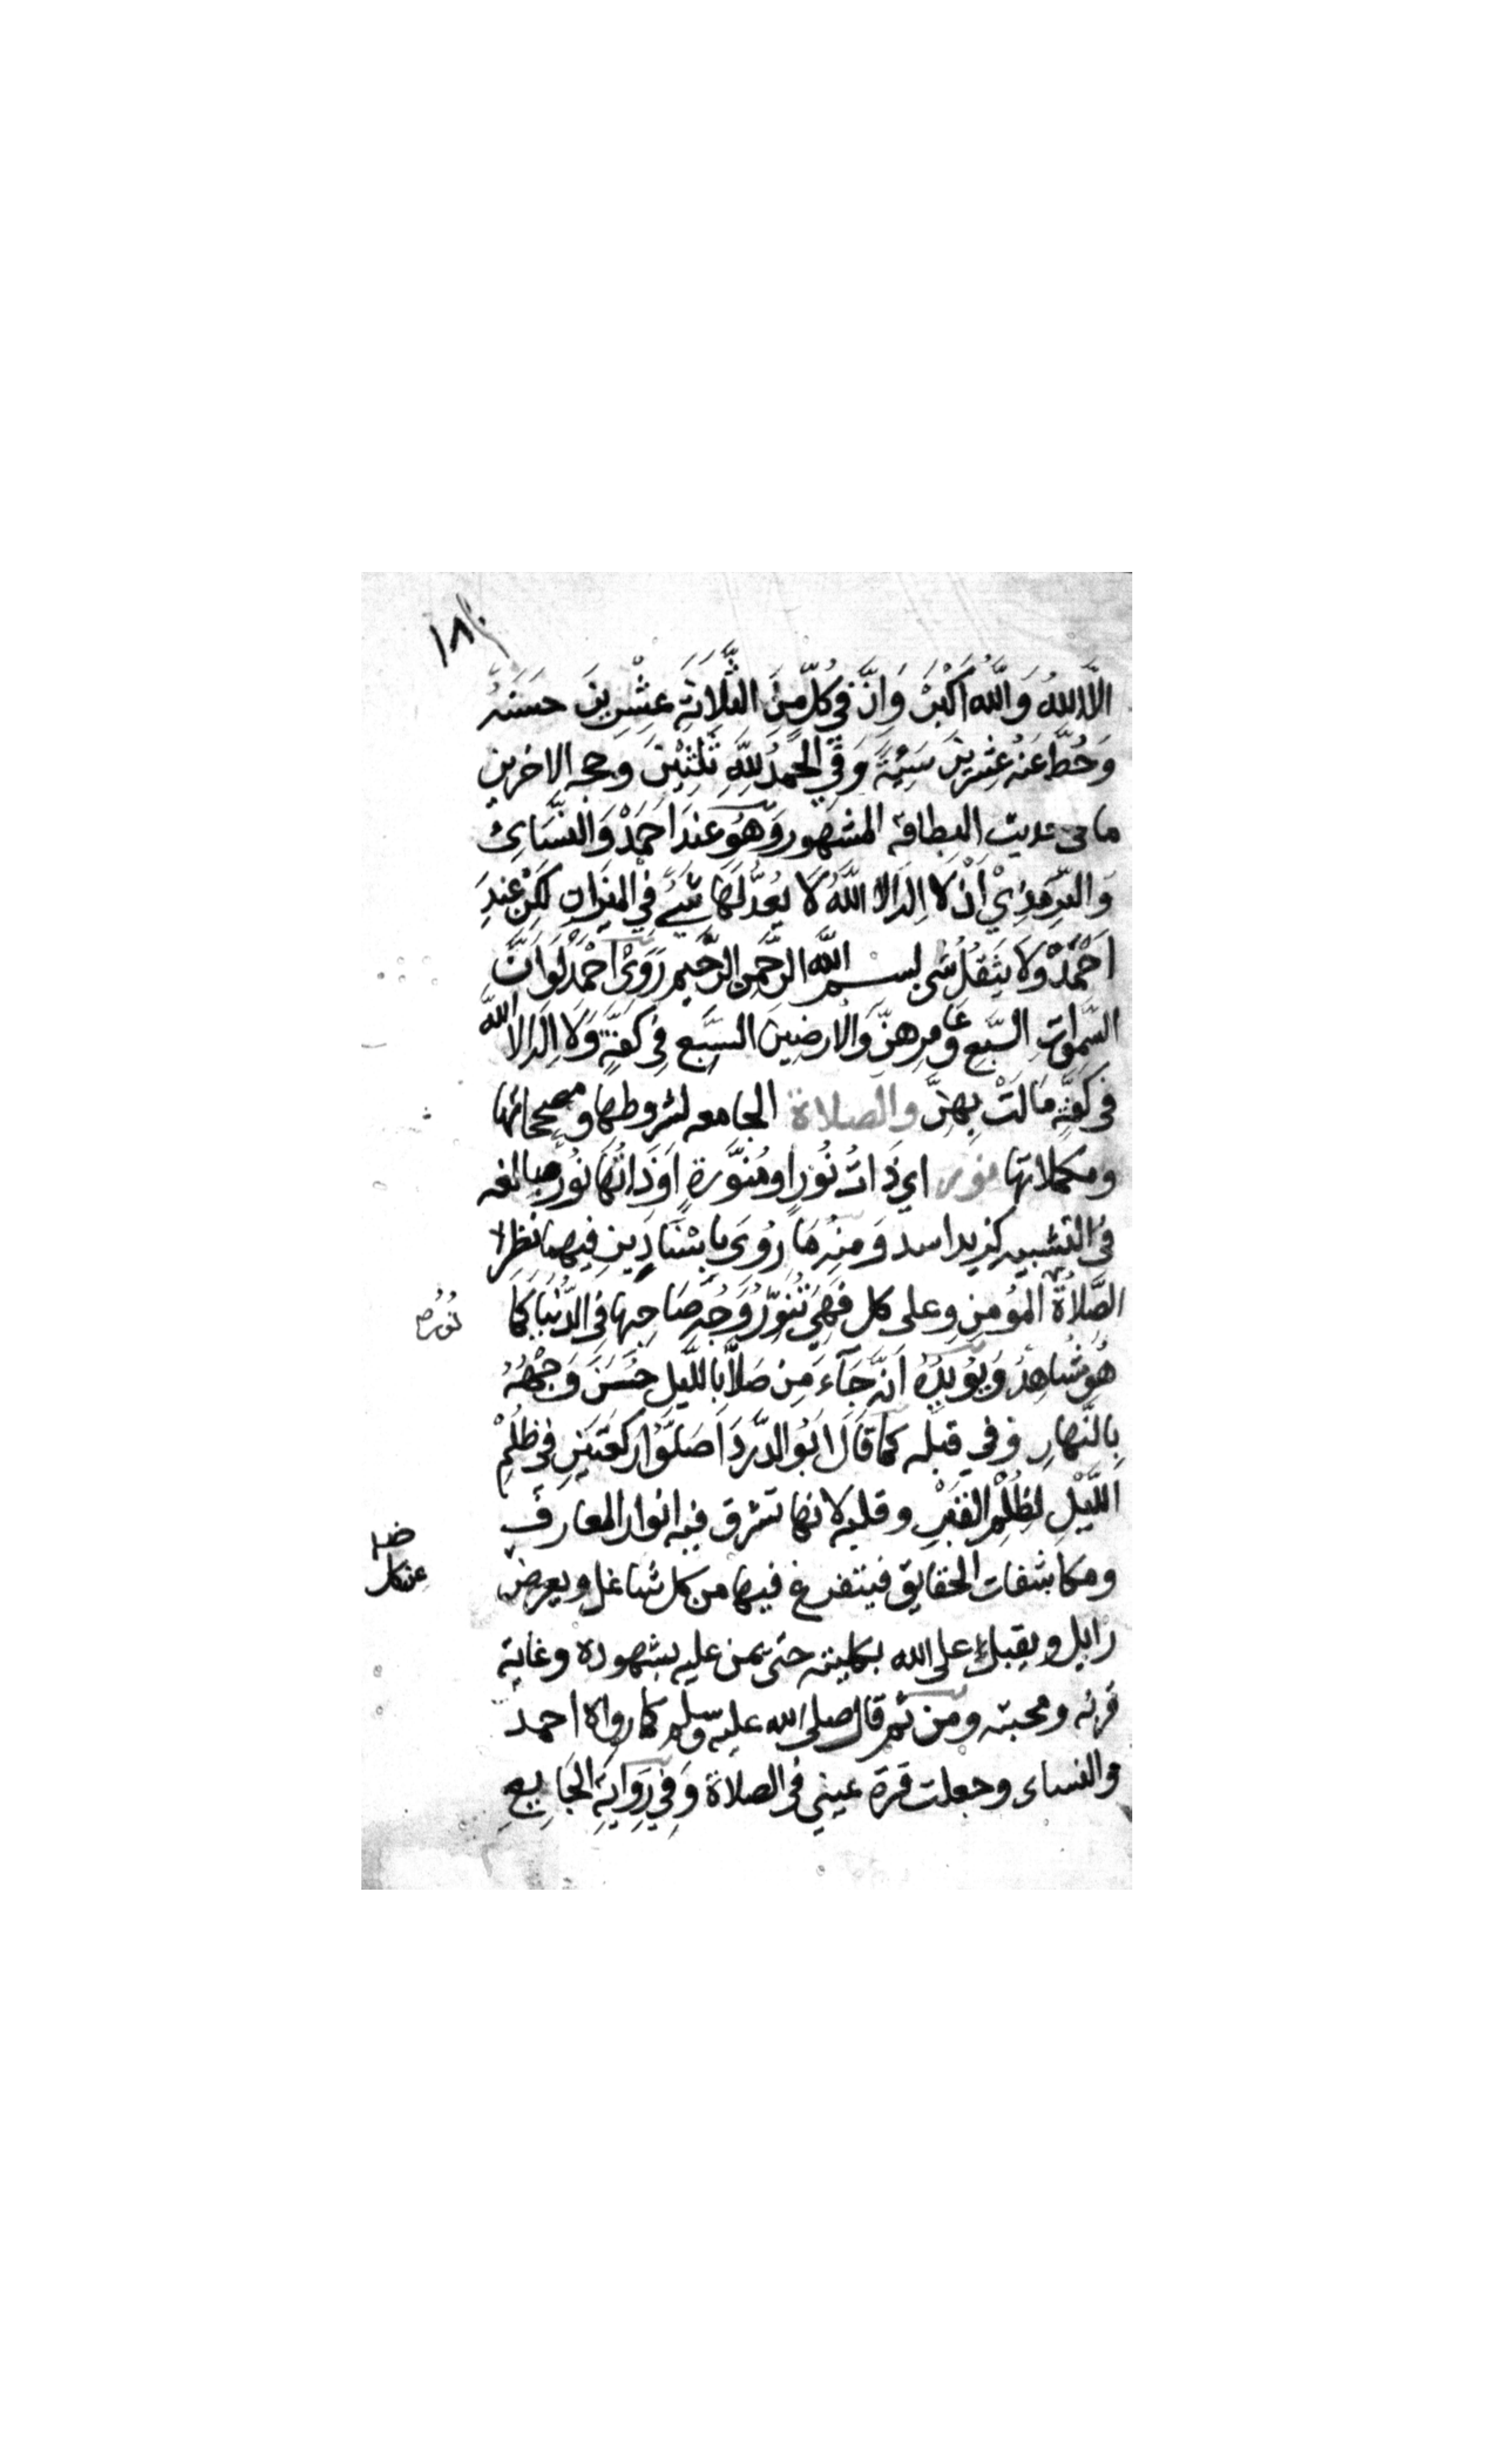 ١٨٠
الَّا اللهُ وَاللَّهُ اَكْبَرْ وَاِنَّ فِي كُلٍّ مِنَ الثَّلَاثَةِ عِشْرِينَ حَسَنَةً
وَحُطَّ عَنْهُ عِشْرِينَ سَيِّئَةً وَفِي الحَمْدُ لِلَّهِ ثَلٰثِيْنَ وحجه الاخرين
ما في حديث البطاقة المشهور وَهُوَ عِندَ اَحْمَدْ وَالنَّسَائِ
وَالتِّرمِذِيْ اَنْ لَا اِلٰهَ اِلا اللَّهُ لَا يَعْدِلُهَا شَيْءٌ فِي المِيزَانِ لٰكِنْ عِندَ
اَحْمَدْ وَلَا يَثْقُلُ شى بسم الله الرَّحْمٰنِ الرَّحِيمِ رَوَىْ اَحْمَدْ لَوْ اَنَّ
السَّمٰوٰتِ السَّبْعِ وَعَامِرِهِنَّ وَالاَرضِينَ السَّبْعِ فِي كَفَّةٍ وَلَا اِلٰهَ اِلَّا اللّٰه
فِي كَفَّةٍ مَالَتْ بِهِنَّ والصلاة الجامعه لشروطها ومصححاتها
ومكملاتها نور اي ذَاتُ نُوْرٍ او مُنَوِّرَةٍ اَوْ ذَاتُهَا نُورٌ مبالغه
فى التشبيه كزيد اسد وَمِنْهُ مَا رُوِىَ بِاِسْنَادَيْنِ فِيهِمَا نَظَرٌ
الصَّلاةُ المُؤمِنِ وعلى كل فَهِيَ تُنَوِّرُ وَجْهَ صَاحِبِهَا فِي الدُّنْيَا كَمَا
نُوْرُ صح
هُوَ مُشَاهِدٌ وَيُؤيِّدُهُ اَنَّه جَآءَ مَن صَلَّا بِاللَّيلِ حَسُنَ وَجْهُهُ
بِالنَّهَارِ وفي قبله كَمَا قَالَ اَبُو الدَّرْدَا صَلَّوْا رَكْعَتَيْنِ فِي ظُلَمِ
اللَّيْلِ لِظُلَمِ القَبْرِ وقلبه لانها تشرق فيه انوار المعارف
ومكاشفات الحقايق فيتفرغ فيها من كل شاغل ويعرض
عن كل
زايل ويقبل على الله بكليته حتى يمن عليه بشهوده وغاية
قربه ومحبته ومن ثم قال صلى الله عليه وسلم كما رواه احمد
والنساى وجعلت قرة عيني فى الصلاة وَفِي رِوَايَةِ الجَامِعِ